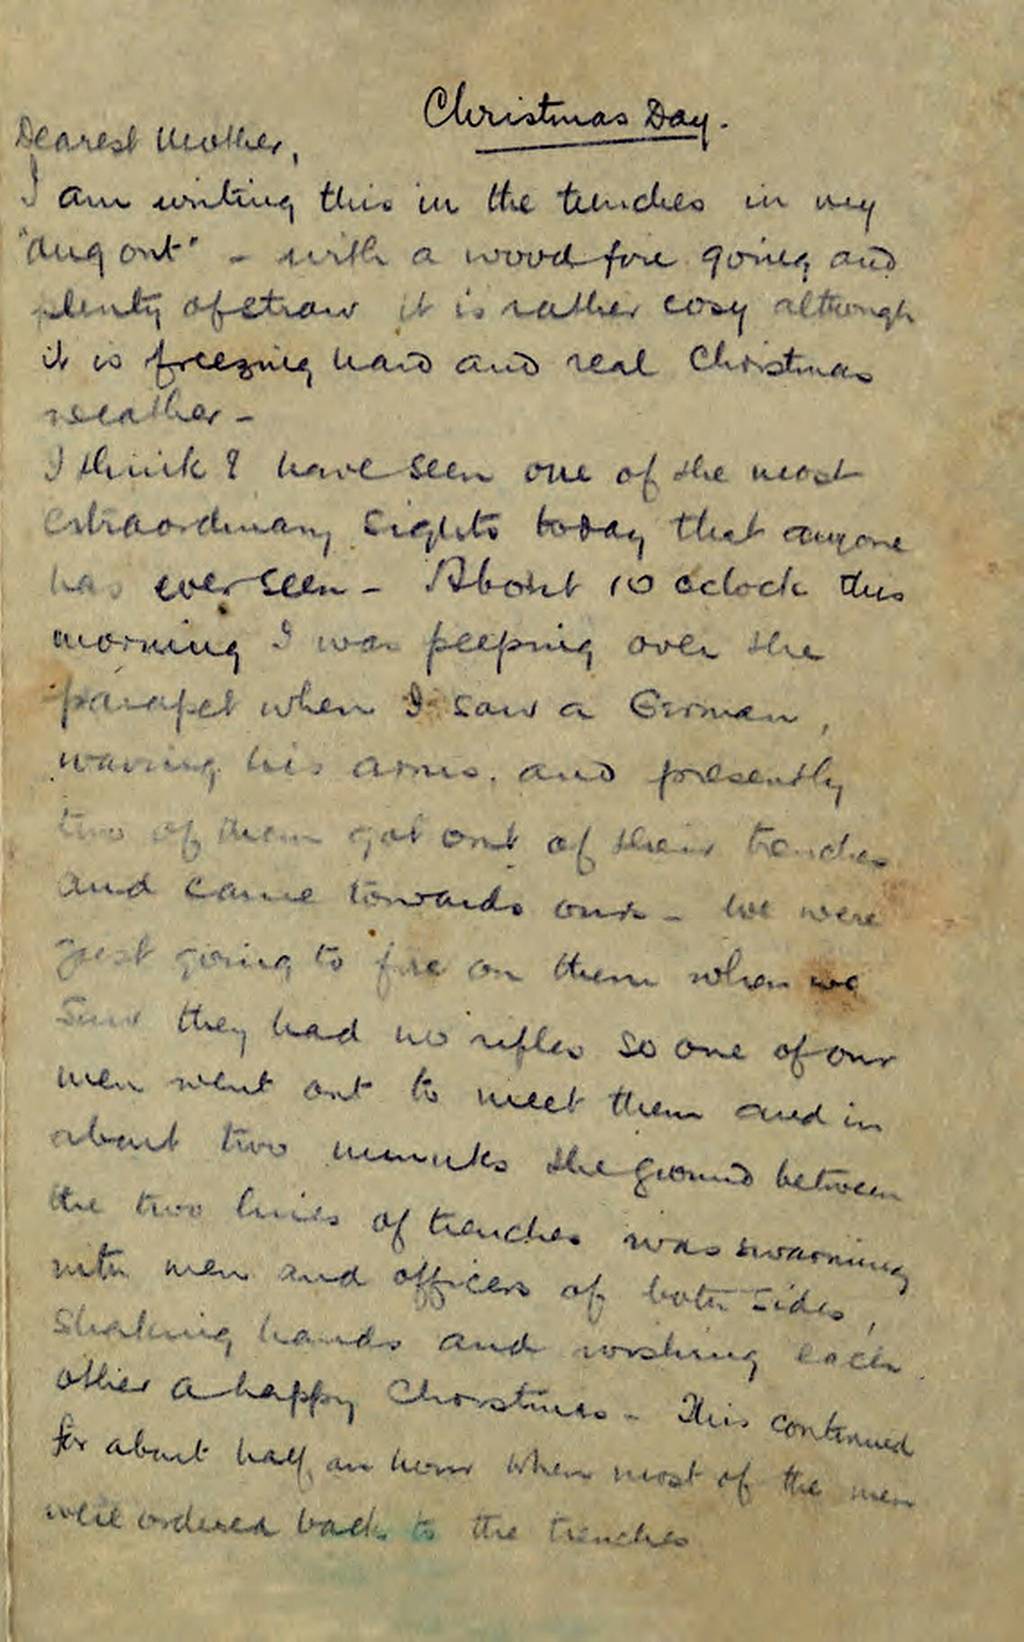 Christmas Day.
Dearest Mother,
I am writing this in the trenches in my
"dug out" - with a wood fire going and
plenty of straw it is rather cosy although
it is freezing hard and real Christmas
weather -
I think I have seen one of the most
extraordinary sights today that anyone
has ever seen - About 10 oclock this
morning I was peeping over the
parapet when I saw a German,
waving his arms, and presently
two of them got out of their trenches
and came towards ours - We were
just going to fire on them when we
saw they had no rifles so one of our
men went out to meet them and in
about two minutes the ground between
the two lines of trenches was swarming
with men and officers of both sides,
shaking hands and wishing each
other a happy Christmas - This continued
for about half an hour when most of the men
were ordered back to the trenches